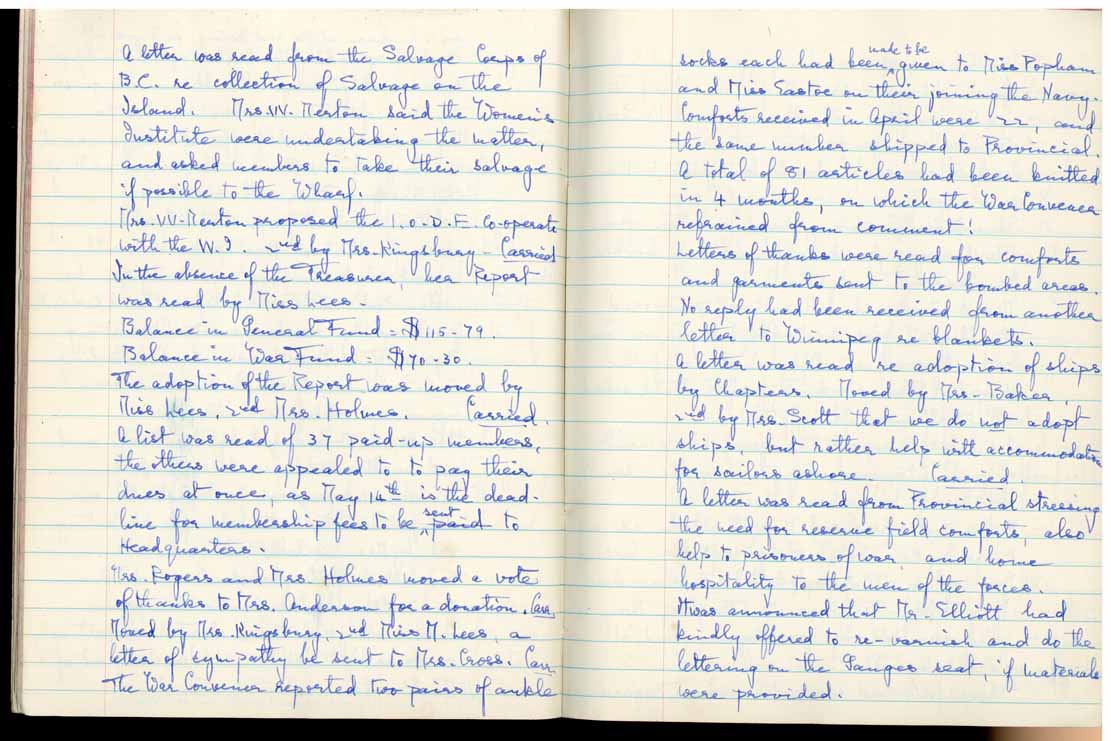 A letter was read from the Salvage Corps of
B.C. re collection of Salvage on the
Island. Mrs. W. Merton said the Women's
Institute were undertaking the matter,
and asked members to take their salvage
if possible to the Wharf.
Mrs. W. Merton proposed the I.O.D.E. Co-operate
with the W.I. 2nd by Mrs. Kingsbury - Carried
In the absence of the Treasurer, her Report
was read by Miss Lees -
Balance in General Fund = $115-79.
Balance in War Fund = $70-30.
The adoption of the Report was moved by
Miss Lees, 2nd Mrs. Holmes. Carried.
A list was read of 37 paid-up members,
the others were appealed to to pay their
dues at once, as May 14th is the dead-
line for membership fees to be sent paid to
Headquarters.
Mrs. Rogers and Mrs. Holmes moved a vote
of thanks to Mrs. Anderson for a donation. Carr
Moved by Mrs. Kingsbury, 2nd Miss M. Lees, a
letter of sympathy be sent to Mrs. Cross. Carr
The War Convener reported two pairs of ankle
socks each had been made to be given to Miss Popham
and Miss Eastoe on their joining the Navy.
Comforts received in April were 22, and
the same number shipped to Provincial.
A total of 81 articles had been knitted
in 4 months, on which the War Convener
refrained from comment!
Letters of thanks were read for comforts
and garments sent to the bombed areas.
No reply had been received from another
letter to Winnipeg re blankets.
A letter was read re adoption of ships
by Chapters. Moved by Mrs. Baker,
2nd by Mrs. Scott that we do not adopt
ships, but rather help with accommodation
for sailors ashore. Carried.
A letter was read from Provincial stressing
the need for reserve field comforts, also
help to prisoners of war, and home
hospitality to the men of the forces.
It was announced that Mr. Elliott had
kindly offered to re-varnish and do the
lettering on the Ganges seat, if materials
were provided.